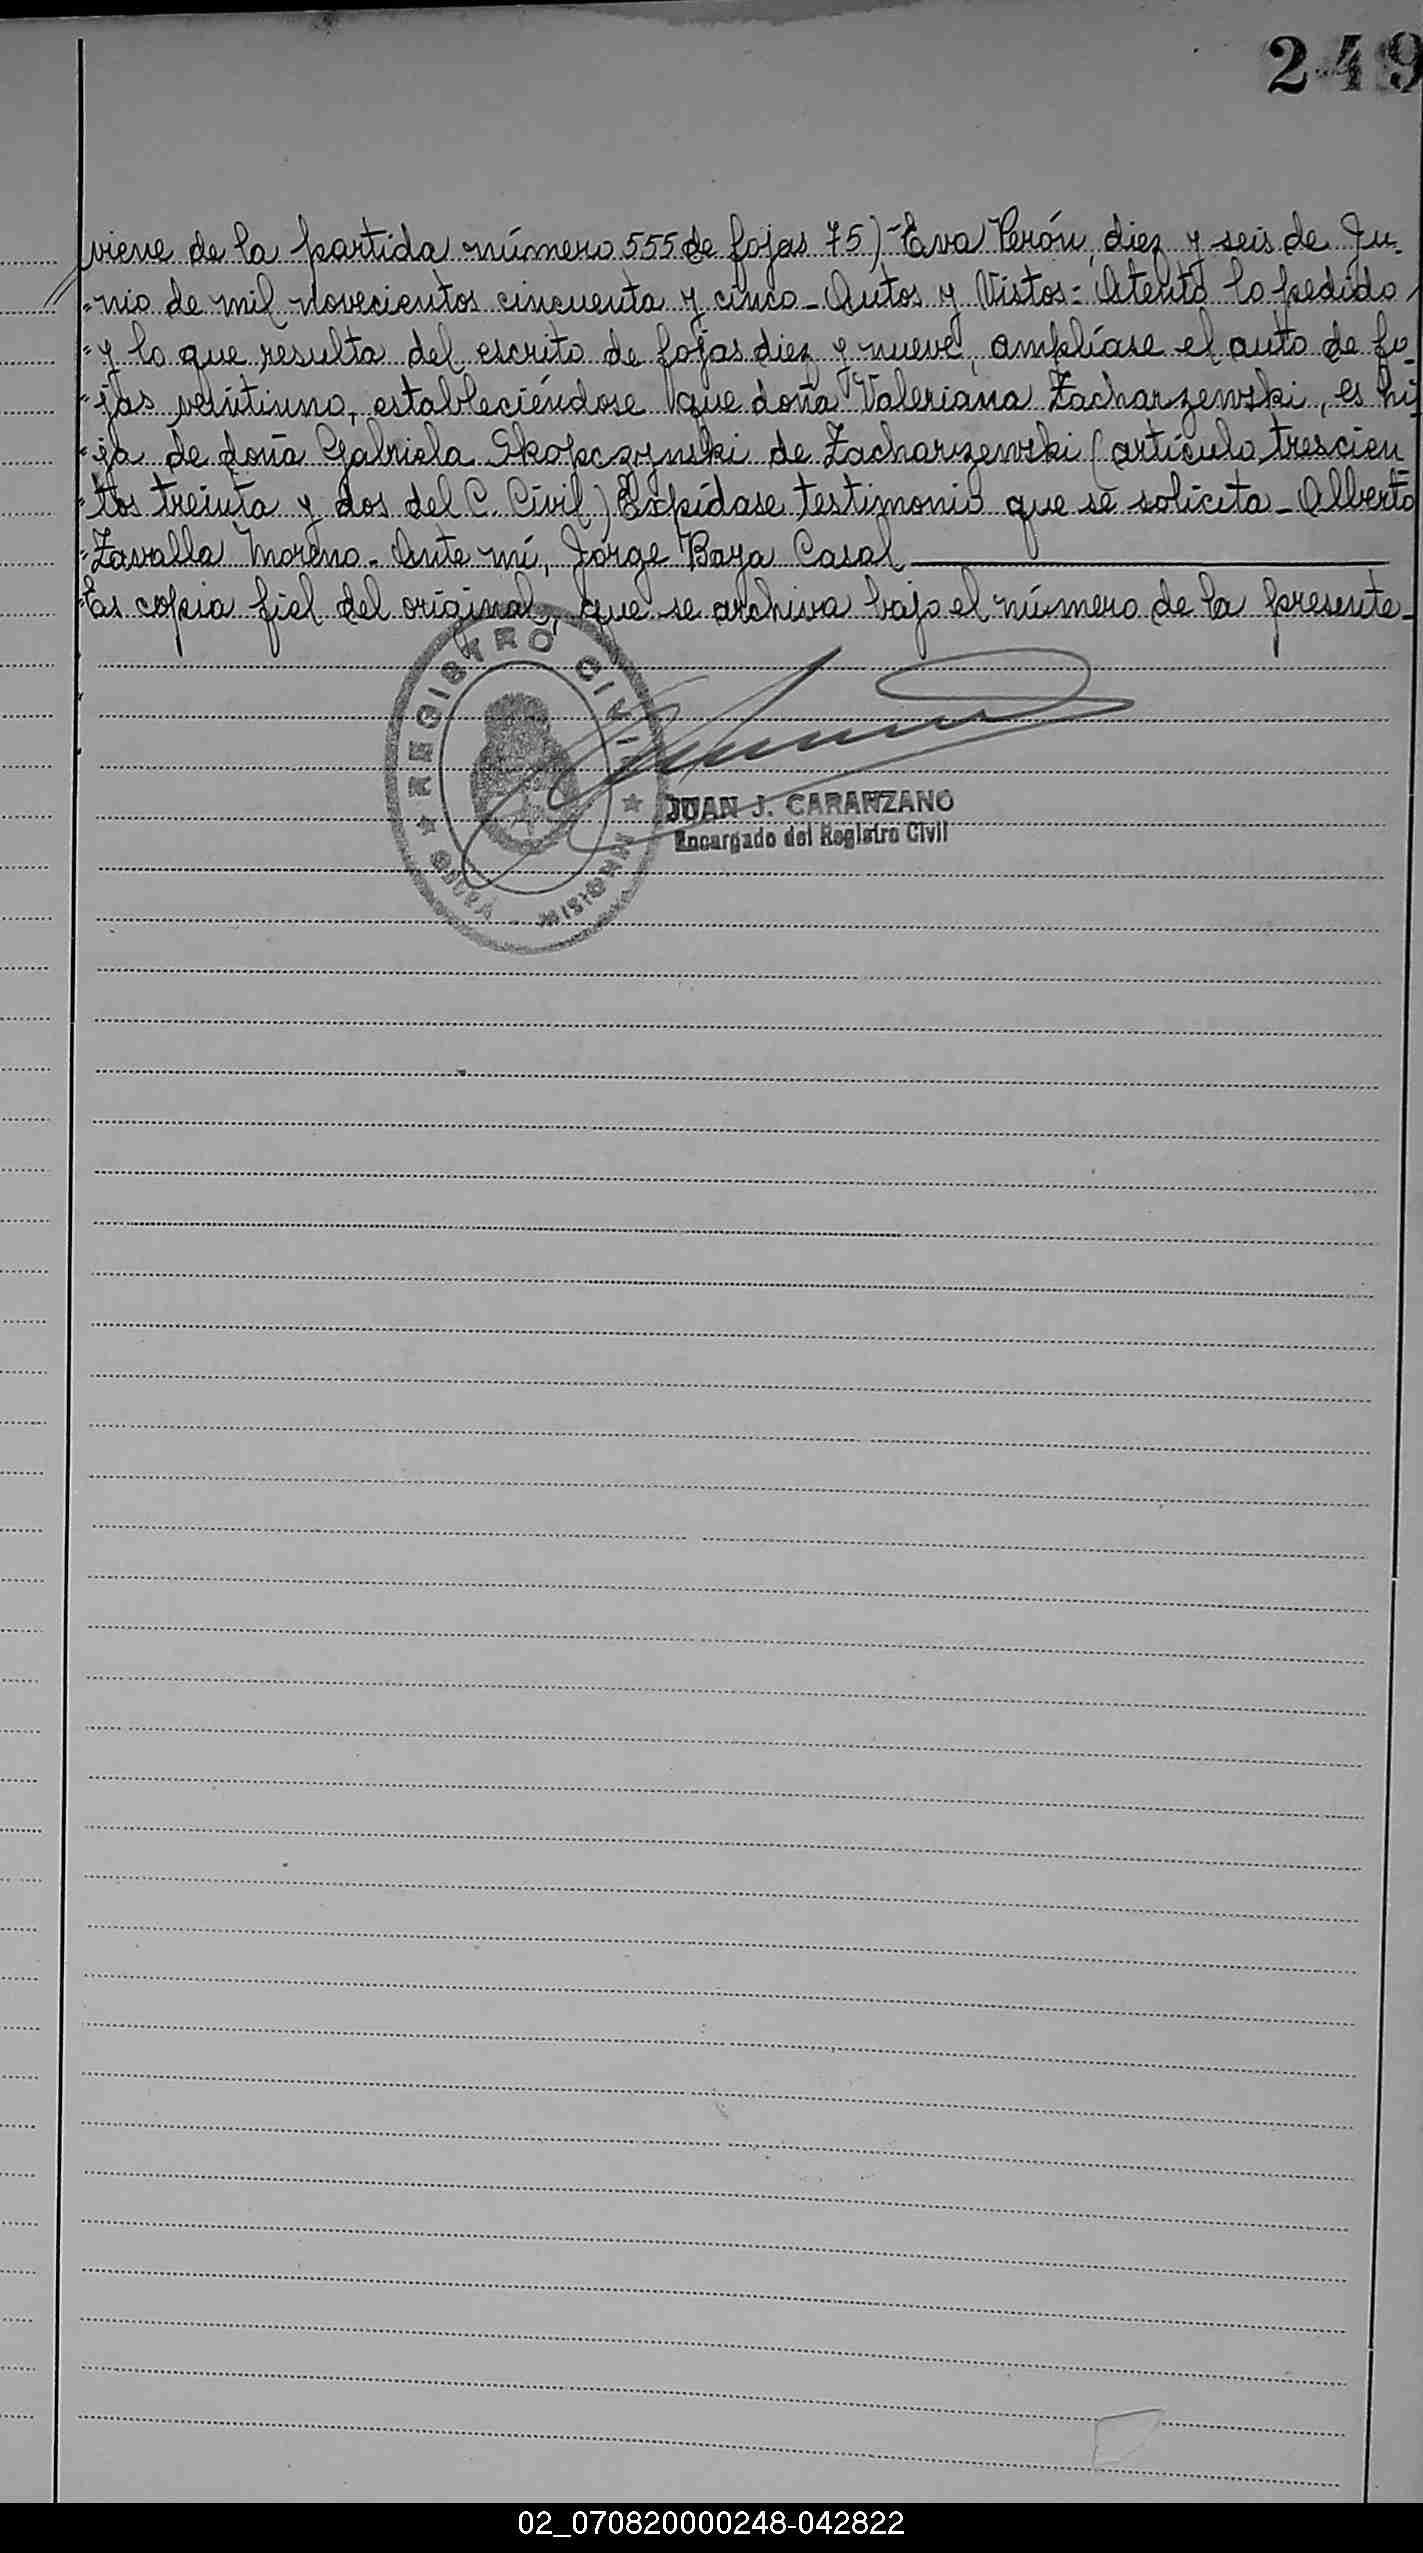 249
viene de la partida número 555 de fojas 75)-Eva Perón, diez y seis de Ju-
nio de mil novecientos cincuenta y cinco-Autos y Vistos:-Atento lo pedido
y lo que resulta del escrito de fojas diez y nueve, amplíase el auto de fo-
jas veintiuno, estableciéndose que doña Valeriana Zacharzewski, es hi-
ja de doña Gabriela Skopczynski de Zacharzewski (artículo trescien
tos treinta y dos del C. Civil) Expídase testimonio que se solicita-Alberto
Zavalla Moreno-Ante mí, Jorge Baya Casal
Es copia fiel del original, que se archiva bajo el número de la presente-
REGISTRO CIVIL
MISIONES
JUAN J. CARANZANO
Encargado del Registro Civil
02_070820000248-042822